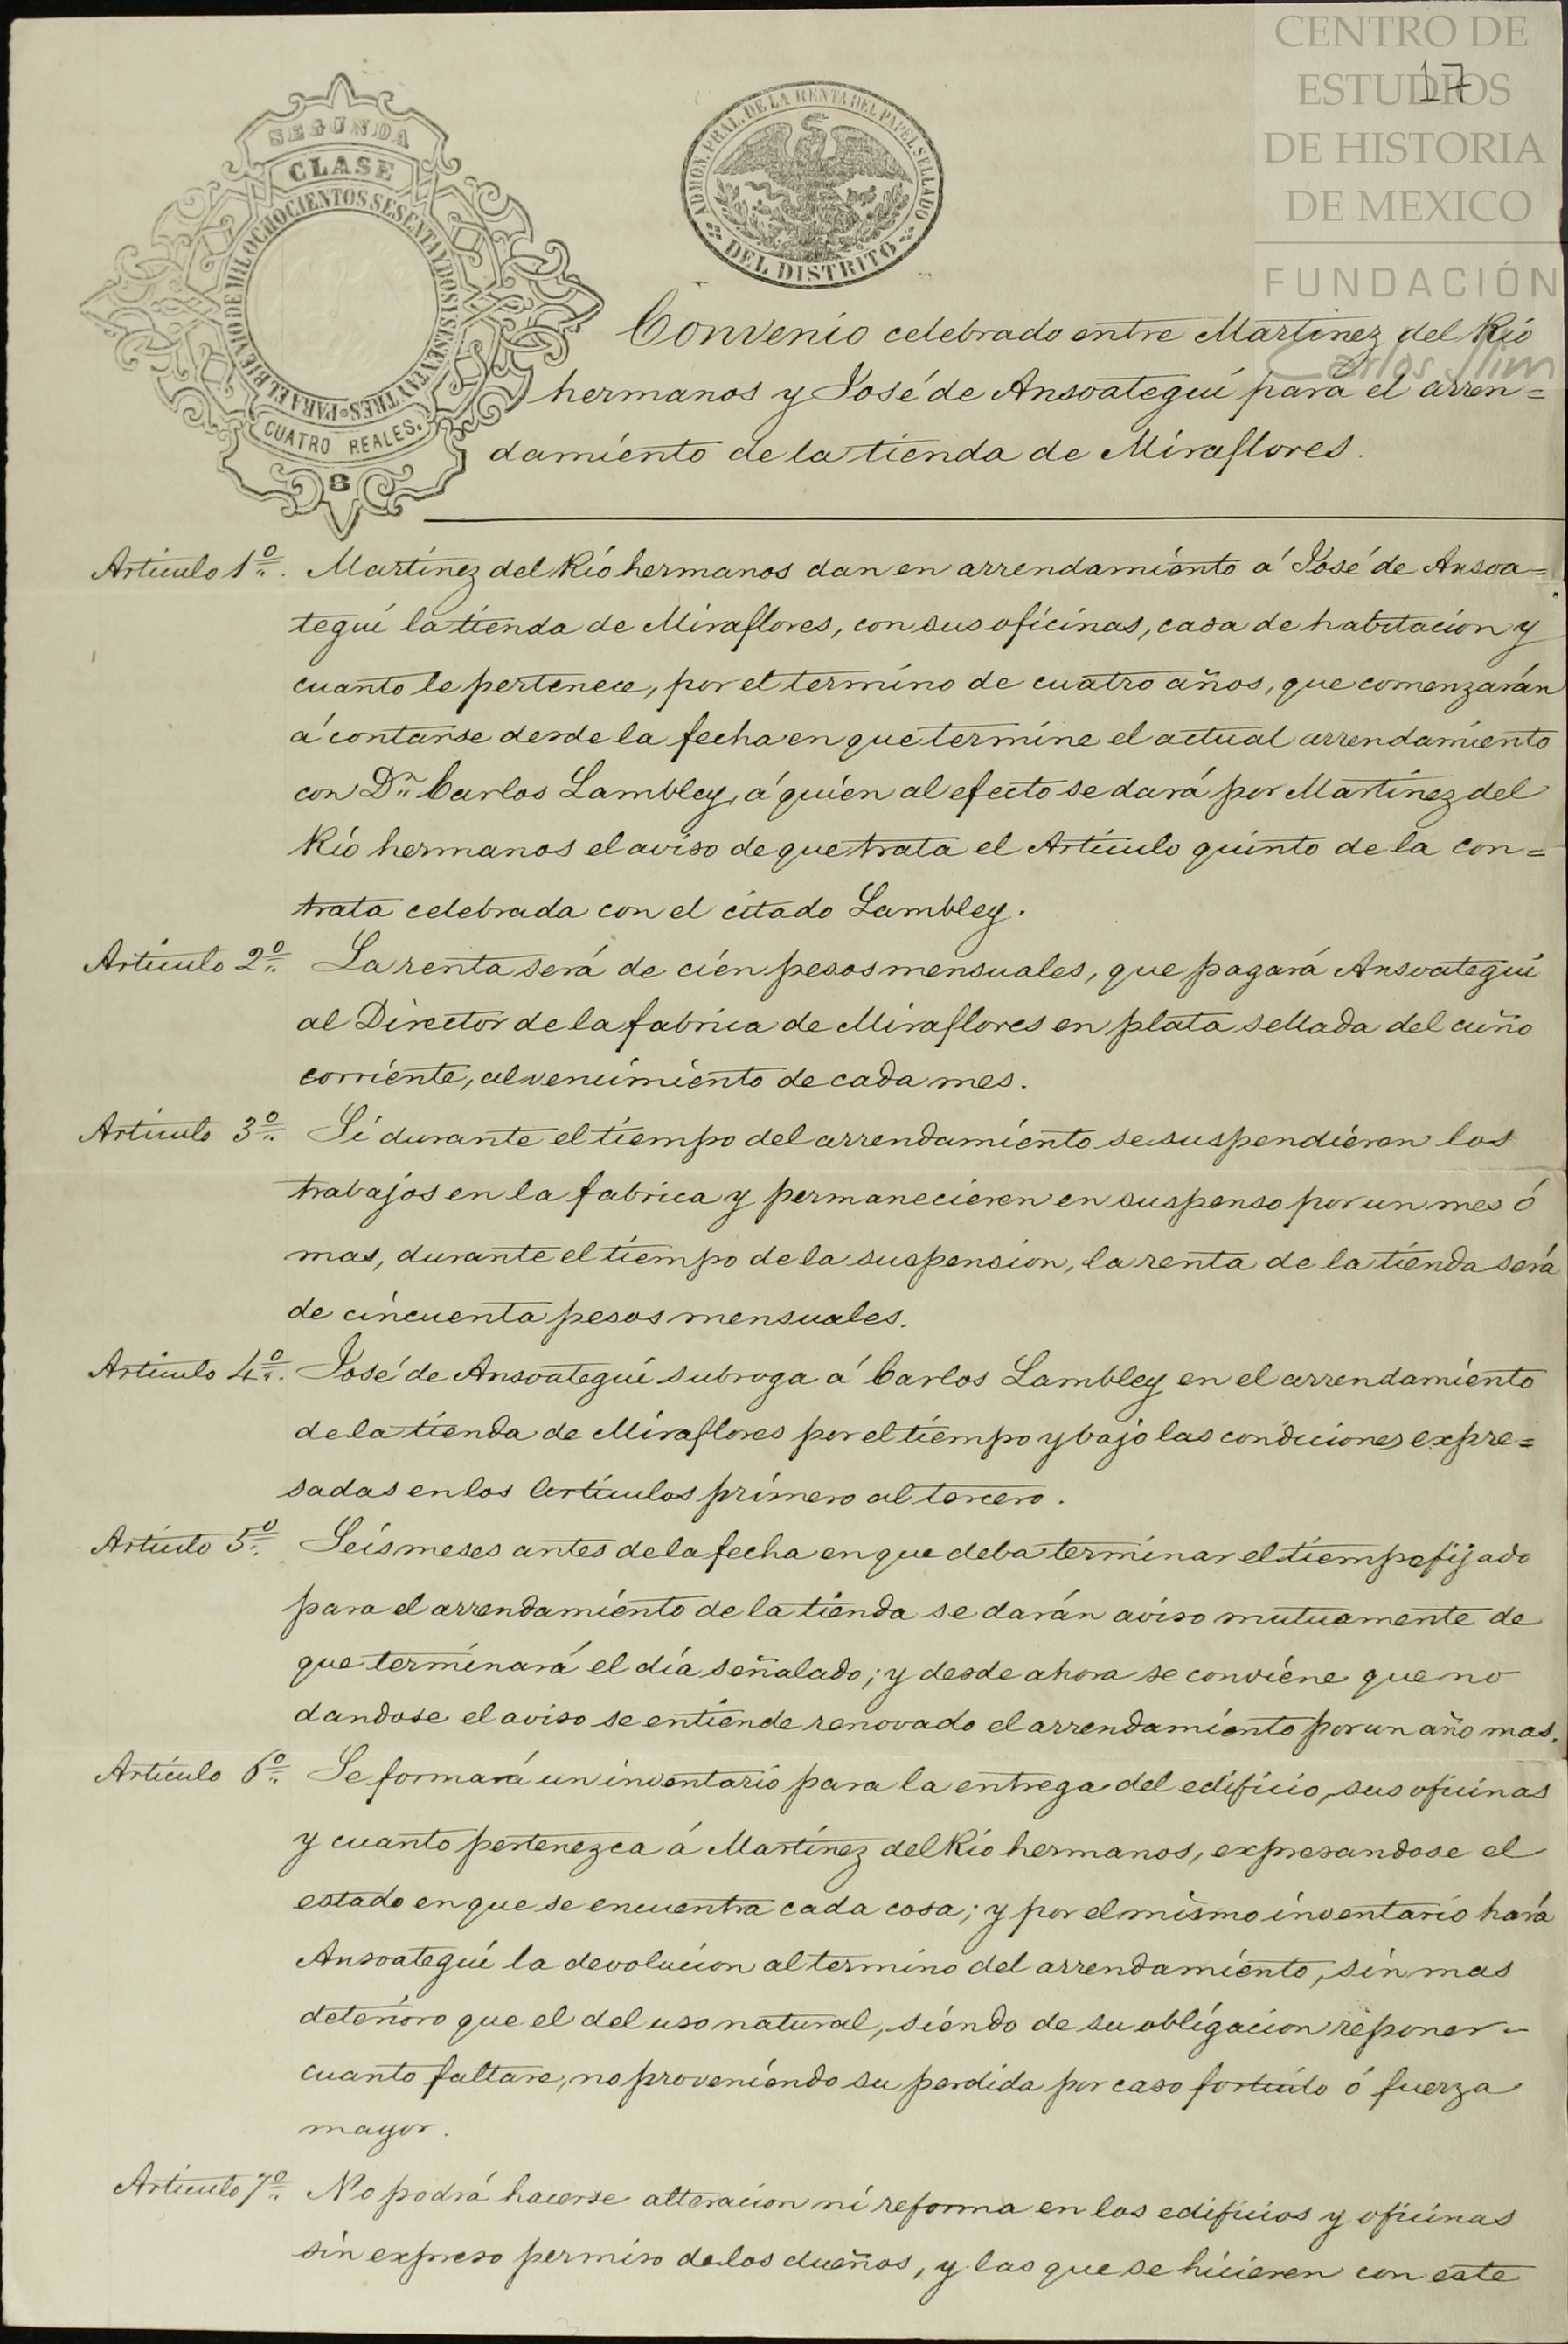 CENTRO DE
ESTUDIOS
DE HISTORIA
DE MEXICO
FUNDACIÓN
Carlos Slim
17
SEGUNDA
CLASE
PARA EL BIENIO DE MIL OCHOCIENTOS SESENTA Y DOS Y SESENTA Y TRES
CUATRO REALES.
8
ADMON. PRAL. DE LA RENTA DEL PAPEL SELLADO
DEL DISTRITO
Convenio celebrado entre Martinez del Rio
hermanos y José de Ansoategui para el arren=
damiento de la tienda de Miraflores.
Articulo 1º. Martinez del Rio hermanos dan en arrendamiento á José de Ansoa=
tegui la tienda de Miraflores, con sus oficinas, casa de habitacion y
cuanto le pertenece, por el termino de cuatro años, que comenzarán
á contarse desde la fecha en que termine el actual arrendamiento
con Dn. Carlos Lambley, á quien al efecto se dará por Martinez del
Rio hermanos el aviso de que trata el Articulo quinto de la con=
trata celebrada con el citado Lambley.
Articulo 2º. La renta será de cien pesos mensuales, que pagará Ansoategui
al Director de la fabrica de Miraflores en plata sellada del cuño
corriente, al vencimiento de cada mes.
Articulo 3º. Si durante el tiempo del arrendamiento se suspendieren los
trabajos en la fabrica y permanecieren en suspenso por un mes ó
mas, durante el tiempo de la suspension, la renta de la tienda será
de cincuenta pesos mensuales.
Articulo 4º. José de Ansoategui subroga á Carlos Lambley en el arrendamiento
de la tienda de Miraflores por el tiempo y bajo las condiciones expre=
sadas en los Articulos primero al tercero.
Articulo 5º. Seis meses antes de la fecha en que deba terminar el tiempo fijado
para el arrendamiento de la tienda se darán aviso mutuamente de
que terminará el dia señalado; y desde ahora se conviene que no
dandose el aviso se entiende renovado el arrendamiento por un año mas.
Articulo 6º. Se formará un inventario para la entrega del edificio, sus oficinas
y cuanto pertenezca á Martinez del Rio hermanos, expresandose el
estado en que se encuentra cada cosa; y por el mismo inventario hará
Ansoategui la devolucion al termino del arrendamiento, sin mas
deterioro que el del uso natural, siendo de su obligacion reponer
cuanto faltare, no proveniendo su perdida por caso fortuito ó fuerza
mayor.
Articulo 7º. No podrá hacerse alteracion ni reforma en los edificios y oficinas
sin expreso permiso de los dueños, y las que se hicieren con este